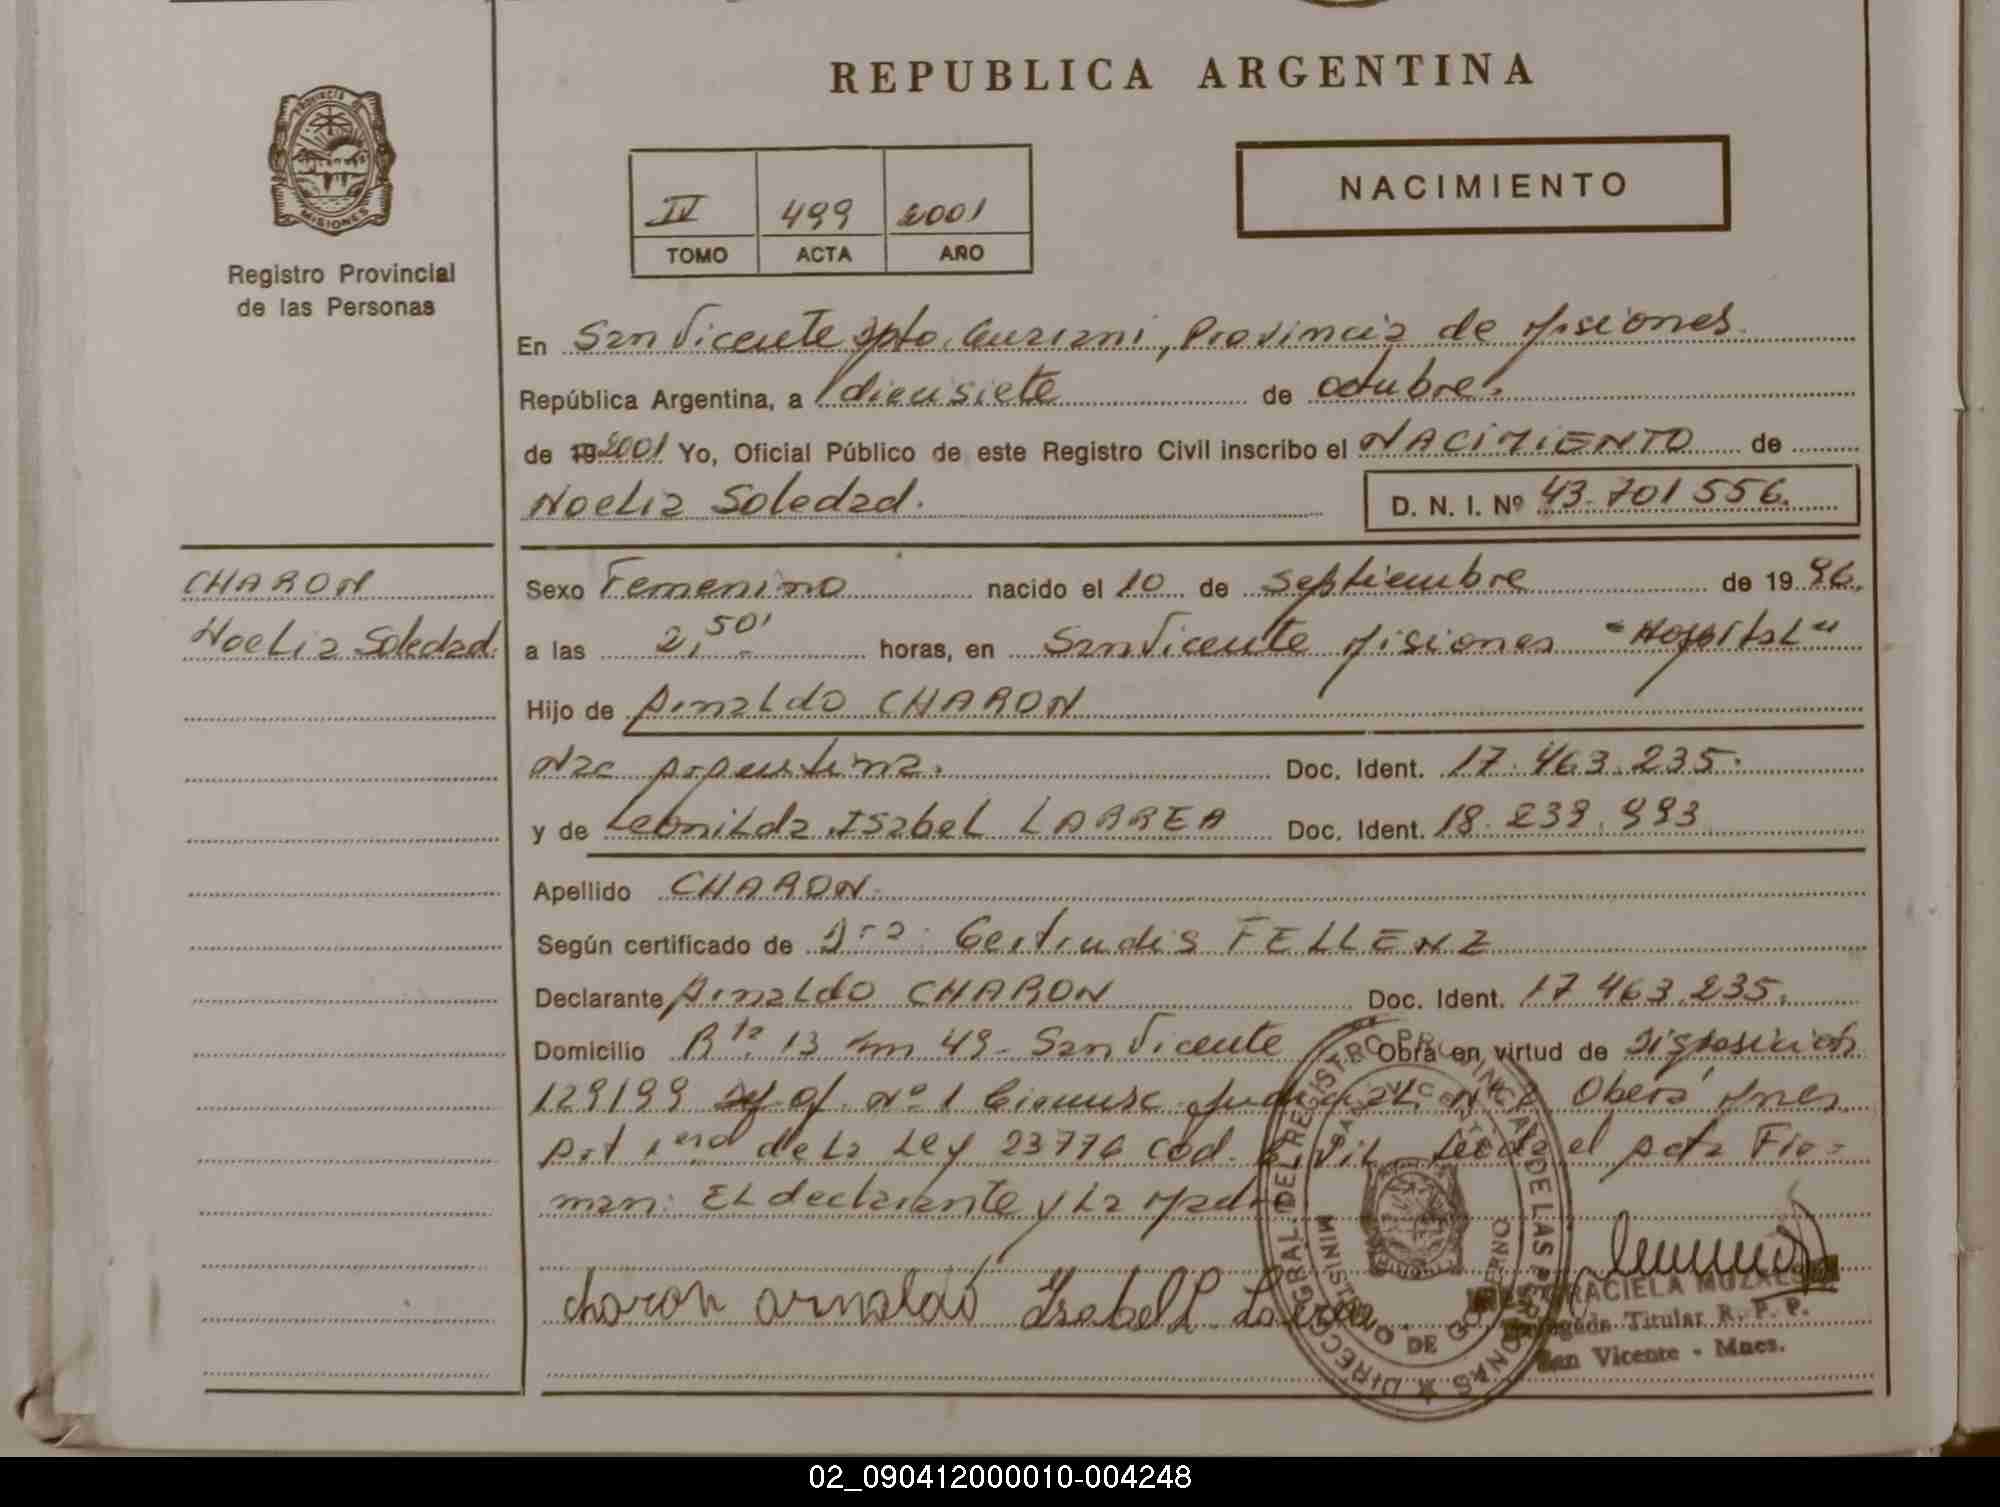 REPUBLICA ARGENTINA
PROVINCIA DE
MISIONES
Registro Provincial
de las Personas
IV 499 2001
TOMO ACTA AÑO
NACIMIENTO
En San Vicente Dpto. Guarani, Provincia de Misiones
República Argentina, a diecisiete de octubre.
de 19 2001 Yo, Oficial Público de este Registro Civil inscribo el NACIMIENTO de
Noelia Soledad. D. N. I. Nº 43.701 556.
CHARON
Noelia Soledad.
Sexo Femenino nacido el 10 de Septiembre de 19 96.
a las 2,50' horas, en San Vicente Misiones "Hospital"
Hijo de Arnaldo CHARON
Nac Argentina. Doc. Ident. 17.463.235.
y de Leonilda Isabel LARREA Doc. Ident. 18.239.993
Apellido CHARON.
Según certificado de Dra. Gertrudis FELLENZ
Declarante Arnaldo CHARON Doc. Ident. 17 463.235.
Domicilio Rta. 13 Km 49 - San Vicente Obra en virtud de Disposición
129199 Nº 1 Nº 2 Obera Mnes
Art 1era de la Ley 23776 Cod. Civil Leida el Acta Fir=
man: El declarante y La Madre
charon arnaldo Isabel L. Larrea
DIRECC. GRAL. DEL REGISTRO PROVINCIAL DE LAS PERSONAS
SAN VICENTE
MINISTERIO DE GOBIERNO
GRACIELA
Delegada Titular R. P. P.
San Vicente - Mnes.
02_090412000010-004248